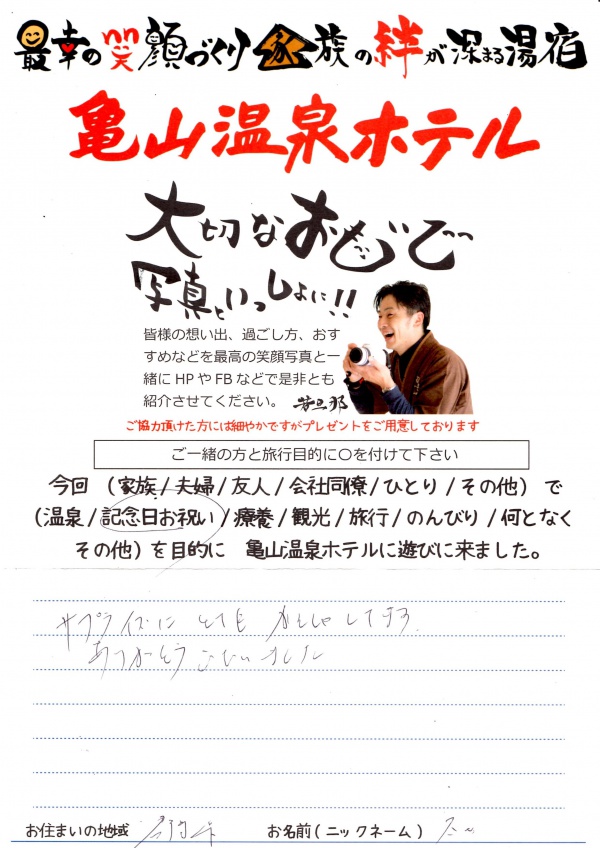 最幸の笑顔づくり 家族の絆が深まる湯宿
亀山温泉ホテル
大切なおもいで
写真といっしょに!!
皆様の想い出、過ごし方、おす
すめなどを最高の笑顔写真と一
緒に HP や FB などで是非とも
紹介させてください。 若旦那
ご協力頂けた方には細やかですがプレゼントをご用意しております
ご一緒の方と旅行目的に〇を付けて下さい
今回 (家族/夫婦/友人/会社同僚/ひとり/その他) で
(温泉/記念日お祝い/療養/観光/旅行/のんびり/何となく
その他) を目的に 亀山温泉ホテルに遊びに来ました。
サプライズに とても かんしゃしてます
ありがとうございました
お住まいの地域 お名前(ニックネーム)